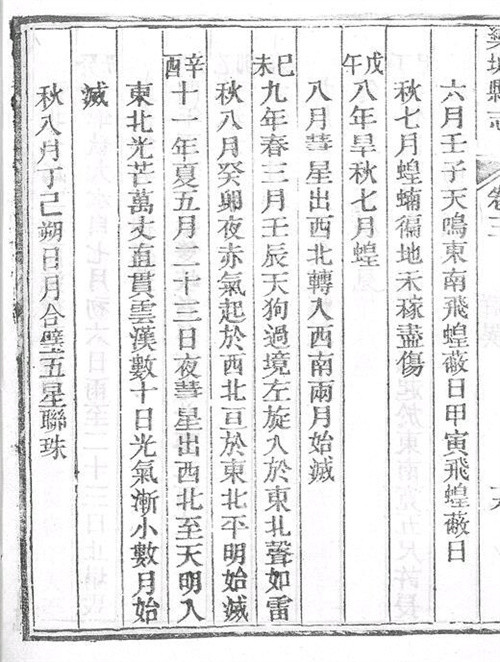 欒城縣志 卷三
六月壬子天鳴東南飛蝗蔽日甲寅飛蝗蔽日
秋七月蝗蝻徧地禾稼盡傷
戊午八年旱秋七月蝗
八月彗星出西北轉入西南兩月始滅
己未九年春三月壬辰天狗過境左旋入於東北聲如雷
秋八月癸卯夜赤氣起於西北亘於東北平明始滅
辛酉十一年夏五月二十三日夜彗星出西北至天明入
東北光芒萬丈直貫雲漢數十日光氣漸小數月始
滅
秋八月丁己朔日月合璧五星聯珠